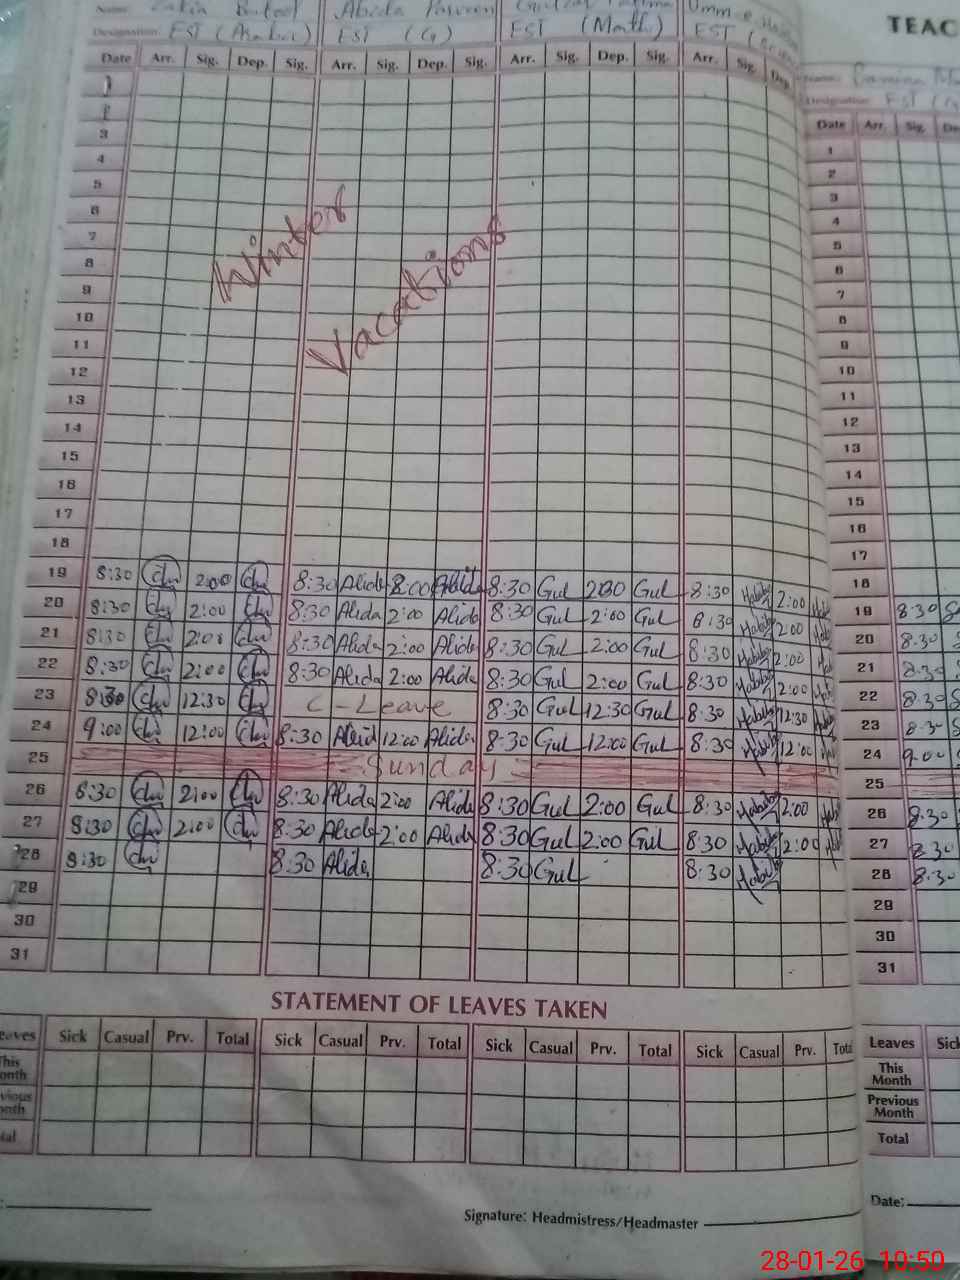 TEAC
Name: Zakia Batool Abida Parveen Gulzar Fatima Umm-e-
Designation: EST (Arabic) EST (G) EST (Math) EST
Date Arr. Sig. Dep. Sig. Arr. Sig. Dep. Sig. Arr. Sig. Dep. Sig. Arr. Sig. Dep.
Name:
Designation: EST
Date Arr. Sig. De
1
2
3
4
5
6
7
8
9
10
11
12
13
14
15
16
17
18
Winter
Vacations
19 8:30 2:00 8:30 Alida 2:00 Alida 8:30 Gul 2:30 Gul 8:30 Habiba 2:00
20 8:30 2:00 8:30 Alida 2:00 Alida 8:30 Gul 2:00 Gul 8:30 Habiba 2:00
21 8:30 2:00 8:30 Alida 2:00 Alida 8:30 Gul 2:00 Gul 8:30 Habiba 2:00
22 8:30 2:00 8:30 Alida 2:00 Alida 8:30 Gul 2:00 Gul 8:30 Habiba 2:00
23 8:30 12:30 C-Leave 8:30 Gul 12:30 Gul 8:30 Habiba 12:30
24 9:00 12:00 8:30 Alida 12:00 Alida 8:30 Gul 12:00 Gul 8:30 Habiba 12:00
25 Sunday
26 8:30 2:00 8:30 Alida 2:00 Alida 8:30 Gul 2:00 Gul 8:30 Habiba 2:00
27 8:30 2:00 8:30 Alida 2:00 Alida 8:30 Gul 2:00 Gul 8:30 Habiba 2:00
28 8:30 8:30 Alida 8:30 Gul 8:30 Habiba
29
30
31
1
2
3
4
5
6
7
8
9
10
11
12
13
14
15
16
17
18
19 8:30
20 8:30
21 8:30
22 8:30
23 8:30
24 9:00
25
26 8:30
27 8:30
28 8:30
29
30
31
STATEMENT OF LEAVES TAKEN
eaves Sick Casual Prv. Total Sick Casual Prv. Total Sick Casual Prv. Total Sick Casual Prv. Total
This
onth
vious
onth
tal
Leaves Sick
This
Month
Previous
Month
Total
Signature: Headmistress/Headmaster
Date:
28-01-26 10:50